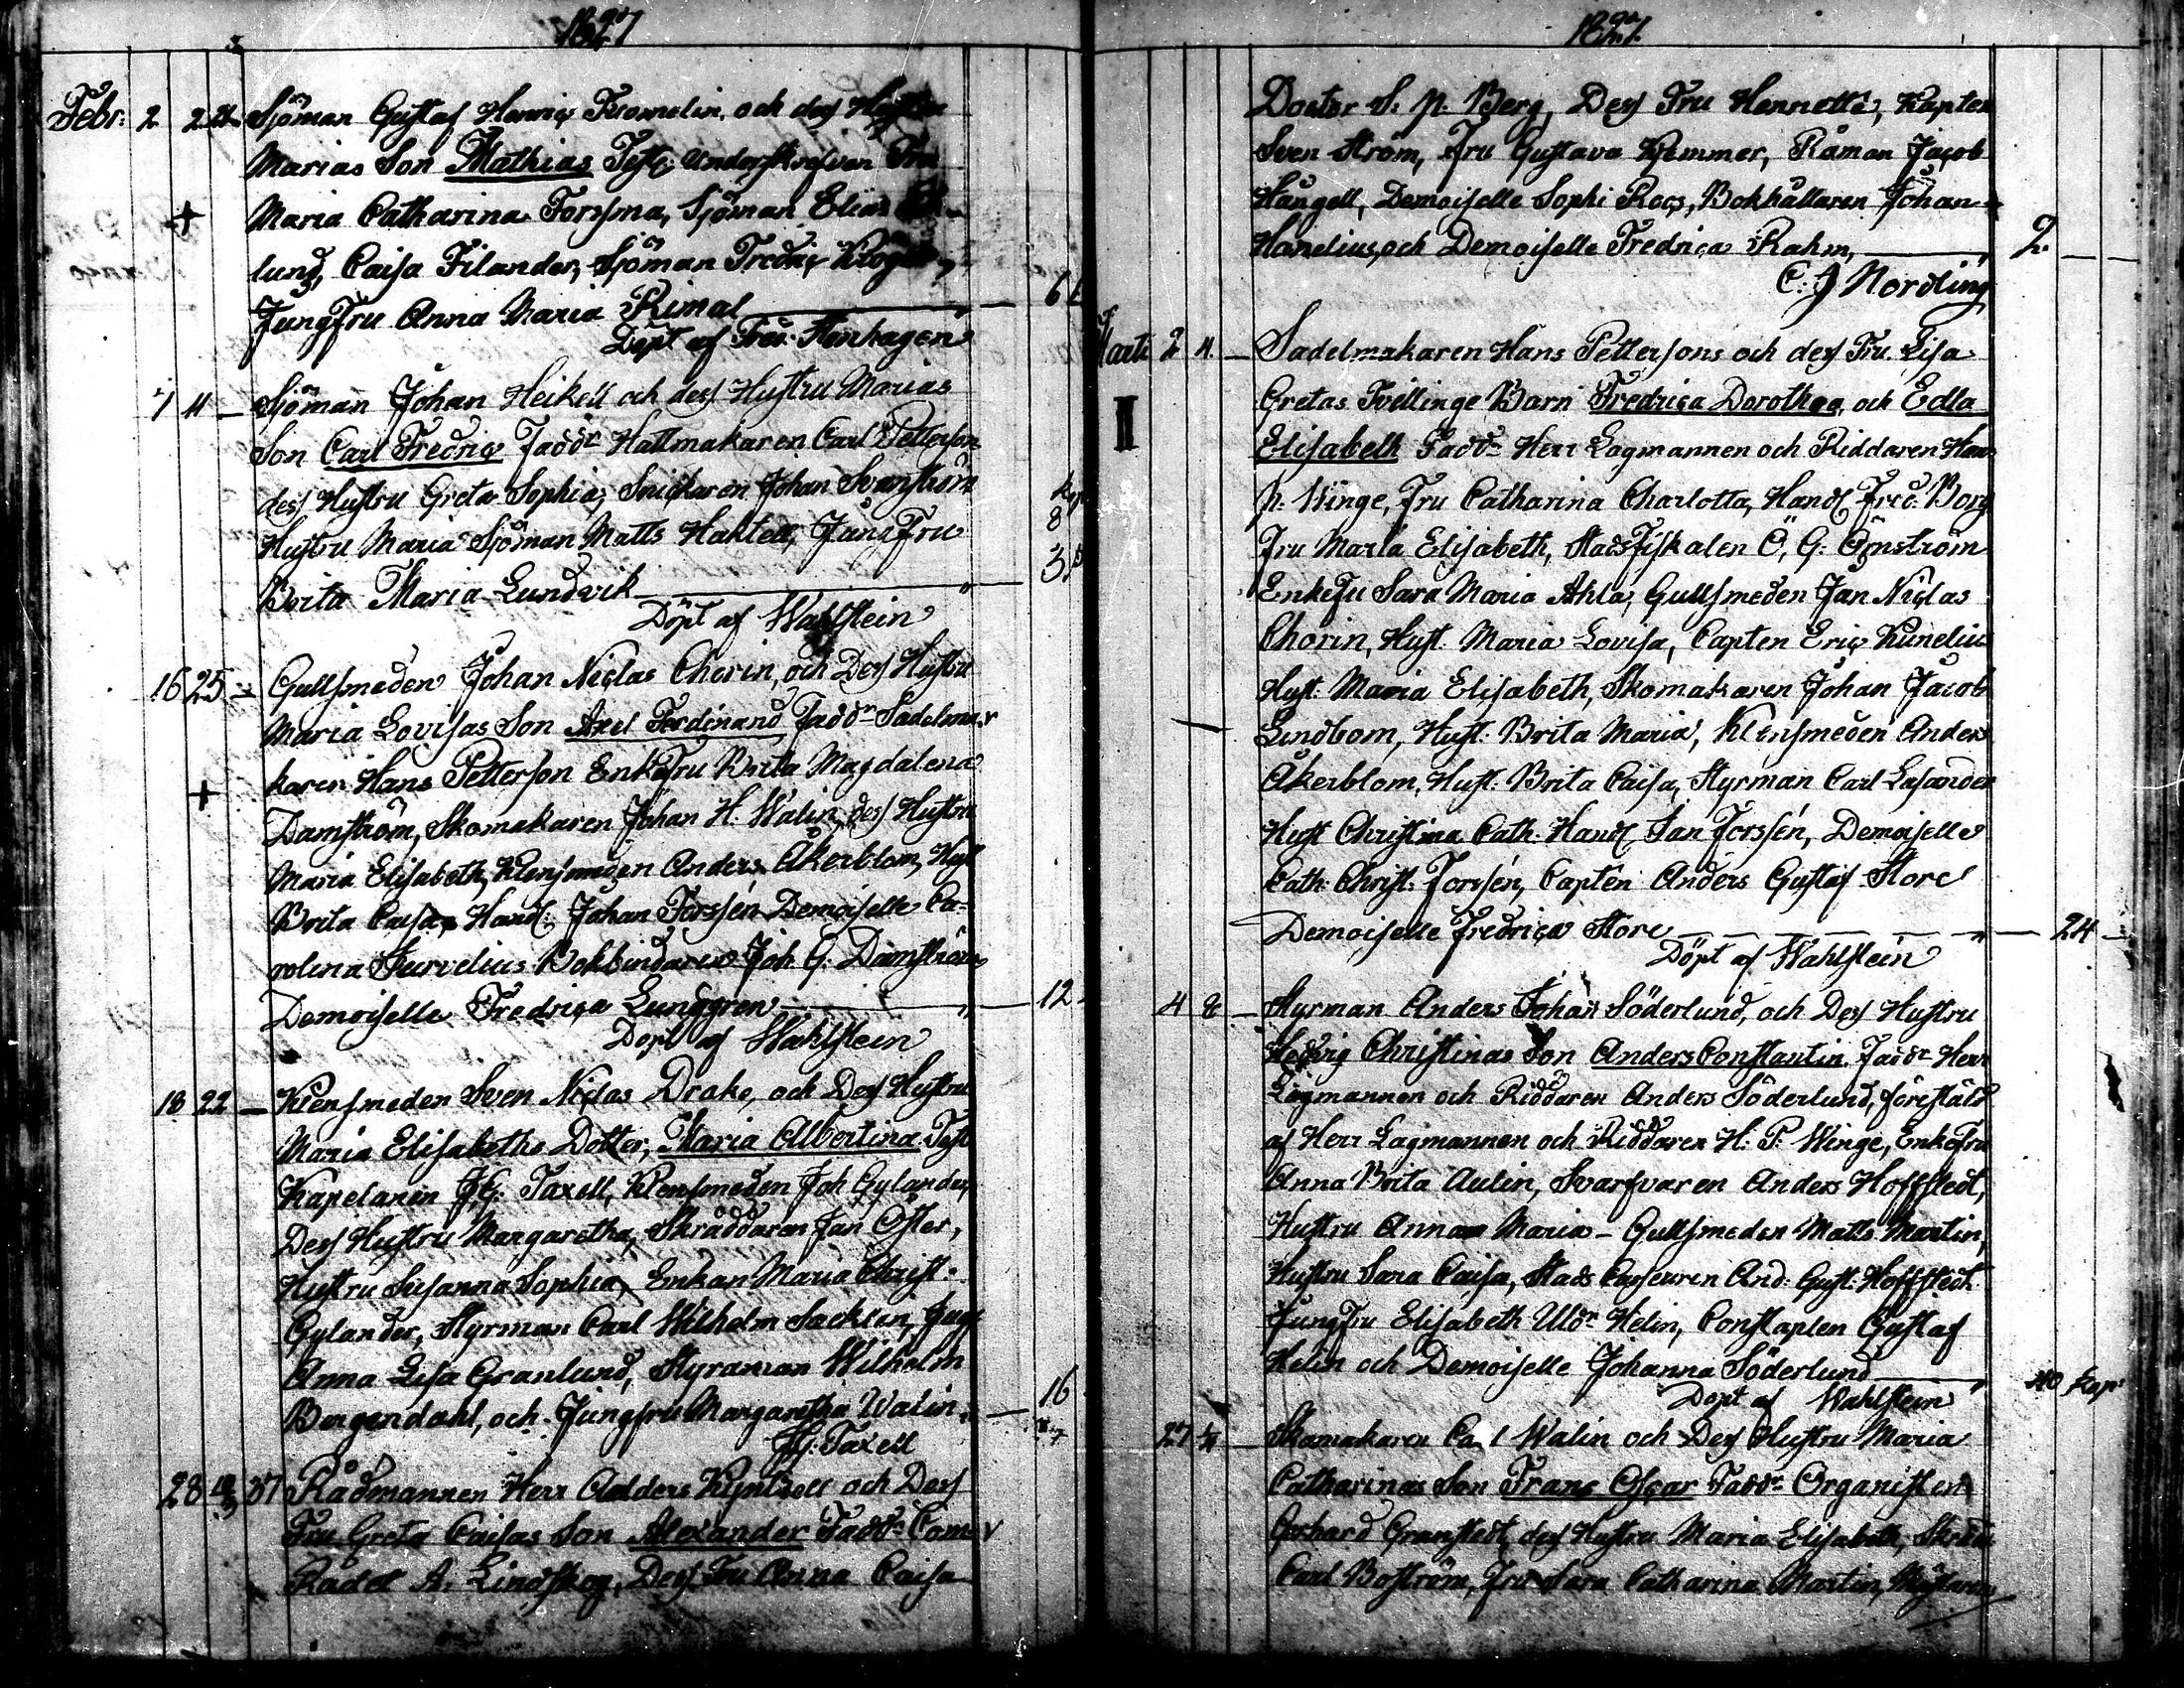 1827
Febr: 2 2 Sjöman Gustaf Henric och dess
Marias Son Mathias Test: Underskrefven Fru
Maria Catharina Forssma, Sjöman Elias
lund, Caisa Filander, Sjöman Fredric
Jungfru Anna Maria Rimal 6
Döpt af Stenhagen
7 11 Sjöman Johan Heikell och dess Hustru Marias
Son Carl Fredric Fadd:r Hattmakaren Carl Petterson
dess Hustru Greta Sophia, Snickaren Johan Svanström
Hustru Maria Sjöman Matts Haktell, JungFru
Brita Maria Lundvik 3
Döpt af Wahlstein
16 25 Gullsmeden Johan Niclas Chorin, och Dess Hustru
Maria Lovisas Son Axel Ferdinand Fadd:r Sadelma
karen Hans Petterson EnkeFru Brita Magdalena
Damström, Skomakaren Johan H. Walin, dess Hustru
Maria Elisabeth, Klensmeden Anders Åkerblom, Hust
Brita Caisa, Handl: Johan Forssén Demoiselle Ca-
rolina Bokbindaren Joh. G. Damström
Demoiselle Fredrica Lunggren 12
Döpt af Wahlstein
18 22 Klensmeden Sven Niclas Drake, och Dess Hustru
Maria Elisabeths Dotter, Maria Albertina Test
Kapelanen J.G. Taxell, Klensmeden Joh Gylander,
Dess Hustru Margaretha, Skräddaren Jan Öster,
Hustru Susanna Sophia, Enkan Maria Christ:
Gylander, Styrman Carl Wilhelm Jugf
Anna Lisa Granlund, Styrman Wilhelm
Bergendahl, och Jungfru Margaretha Walin 16
JG: Taxell
28 37 Rådmannen Herr och Dess
Fru Greta Caisas Son Alexander Fadd:r Com
Rådet A. Lindskog, Dess Fru Anna Caisa
1827
Doctor S. P. Berg, Dess Fru Henriette, Kapten
Sven Ström, Fru Gustava Råman Jacob
Hångell, Demoiselle Sophi Roos, Bokhållaren Johan
Hanelius, och Demoiselle Fredrica Rahm, 2
C: J Nordling
Marti 2 4. Sadelmakaren Hans Pettersons och dess Fru Lisa
Gretas Tvillinge Barn Fredrica Dorothea och Edla
II Elisabeth Fadd:r Herr Lagmannen och Riddaren Hans
P: Winge, Fru Catharina Charlotta, Handl Fred: Borg
Fru Maria Elisabeth, StadsFiskalen O. G. Örnström
EnkeFu Sara Maria Ahla, Gullsmeden Jan Niclas
Chorin, Hust: Maria Lovisa, Capten Eric Kunelius
Hust: Maria Elisabeth, Skomakaren Johan Jacob
Lundbom, Hust: Brita Maria, Klensmeden Anders
Åkerblom, Hust: Brita Caisa, Styrman Carl Lasander
Hust Christina Cath: Handl Jan Forssén, Demoiselle
Cath: Christ: Forssén, Capten Anders Gustaf Store
Demoiselle Fredrica Store 24
Döpt af Wahlstein
4 8 Styrman Anders Johan Söderlund, och Dess Hustru
Hedvig Christinas Son Anders Constantin Fadd:r Herr
Lagmannen och Riddaren Anders Söderlund, föreställd
af Herr Lagmannen och Riddaren H: P: Winge, EnkeFru
Anna Brita Aulin, Svarfvaren Anders Hoffstedt,
Hustru Anna Maria - Gullsmeden Matts Martin,
Hustru Sara Caisa, Stads Casseuren And: Gust: Hoffstedt
JungFru Elisabeth Ulr: Helin, Constaplen Gustaf
Helin och Demoiselle Johanna Söderlund 40 Kop:
Döpt af Wahlstein
27 Skomakaren Carl Walin och Dess Hustru Maria
Catharinas Son Frans Oscar Fadd:r Organisten
Gerhard Granstedt, dess Hustru Maria Elisabeth,
Carl Boström, Fru Sara Catharina Martin,